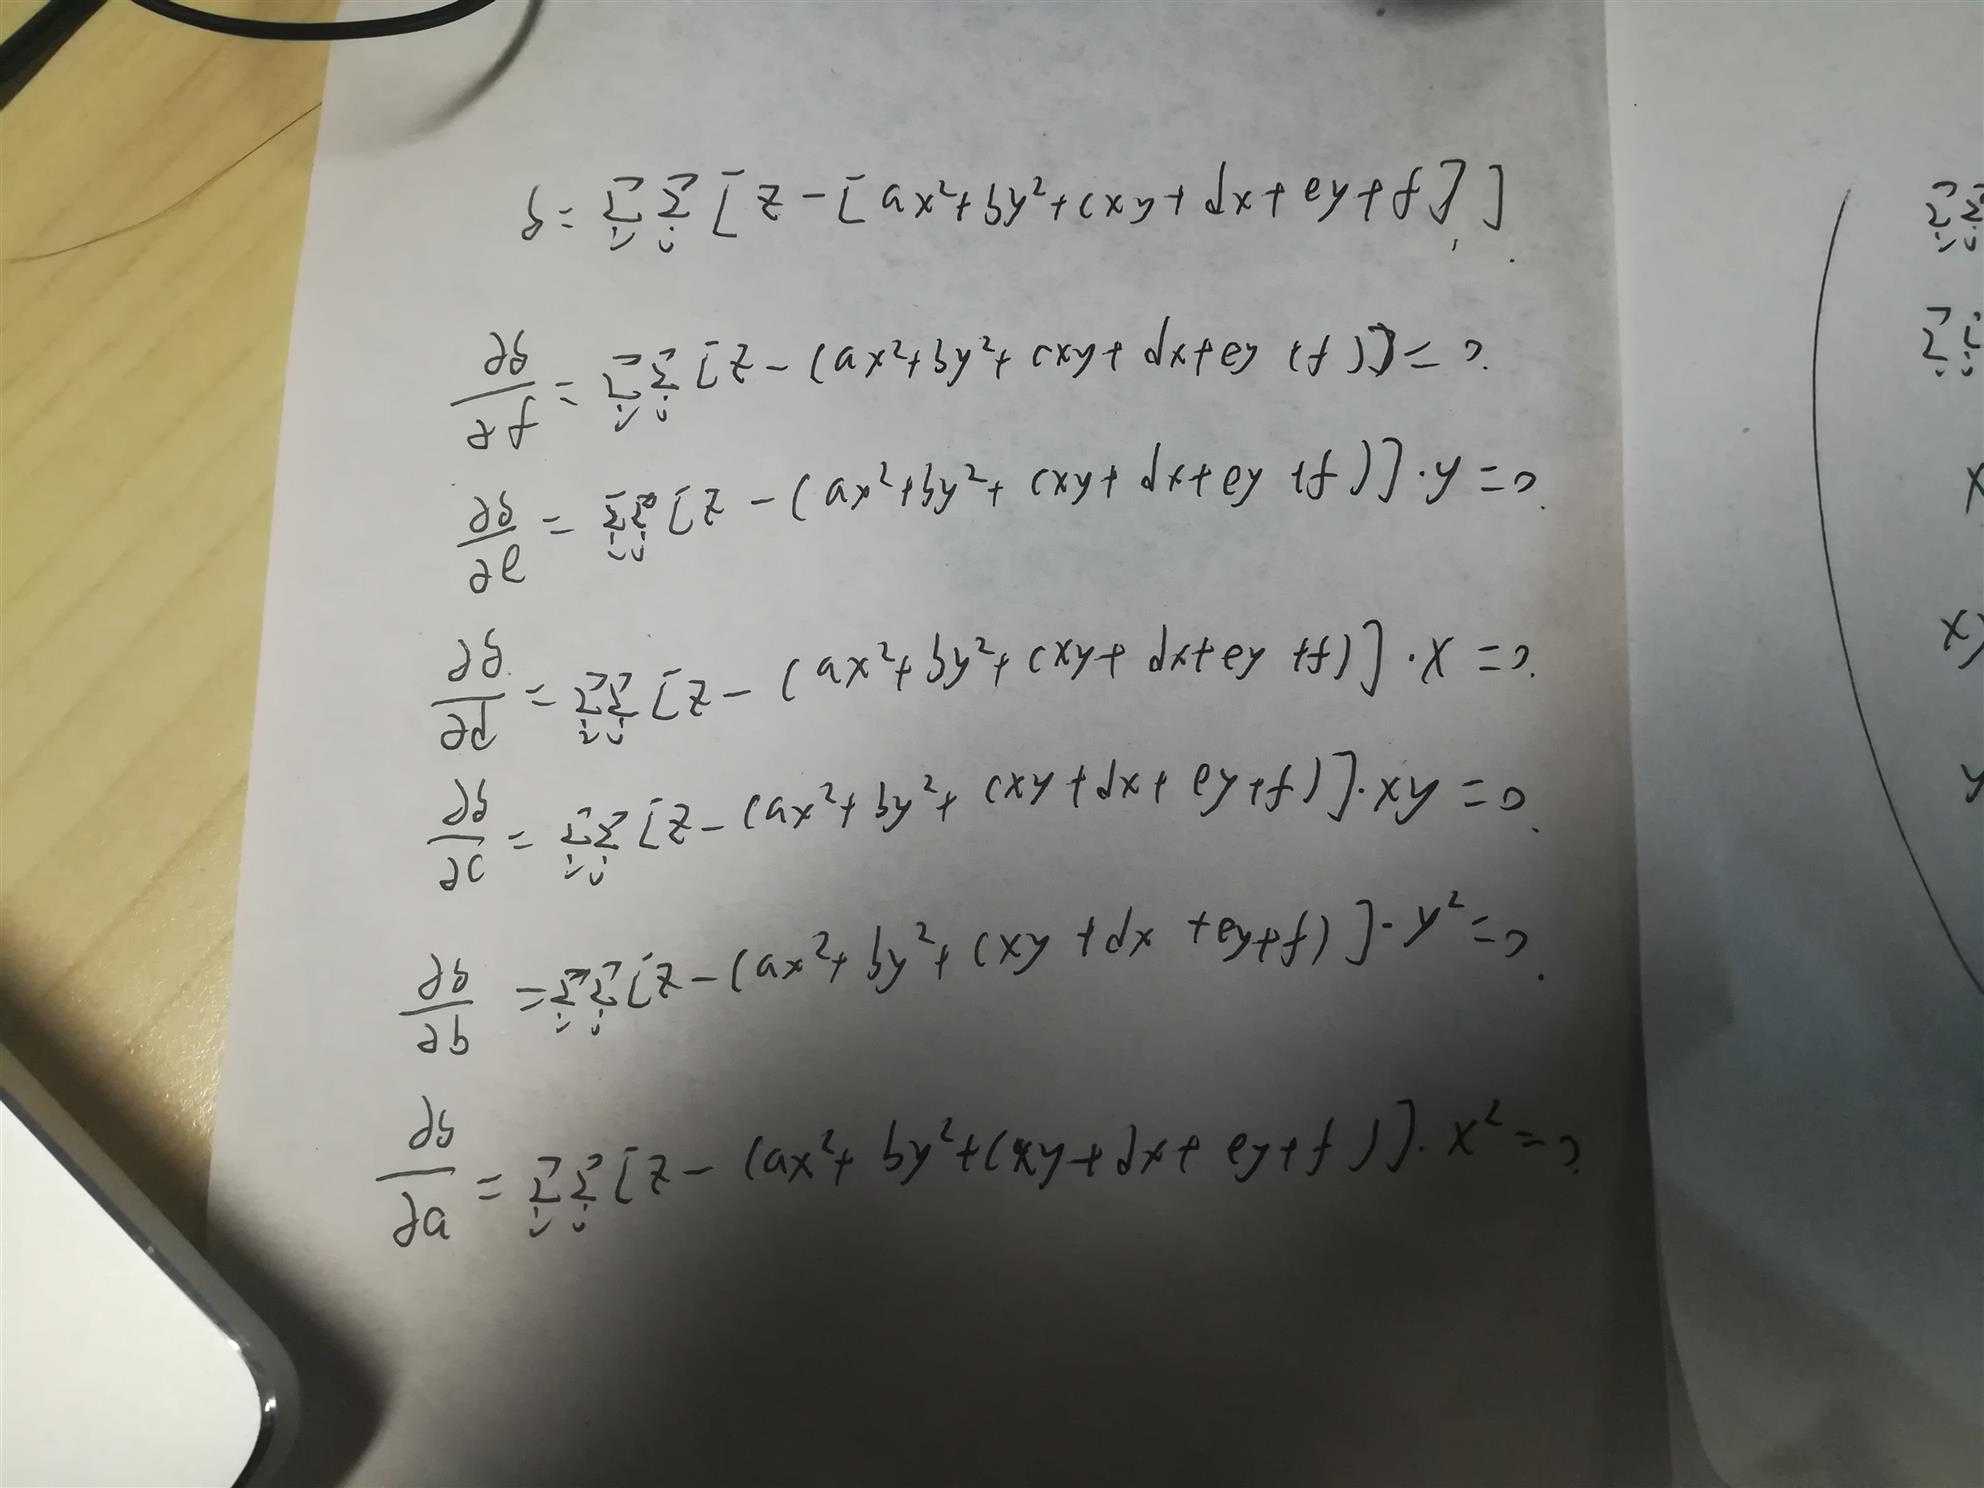 δ = Σ_i Σ_j [z - [ax²+by²+cxy+dx+ey+f]]
∂δ/∂f = Σ_i Σ_j [z - (ax²+by²+cxy+dx+ey+f)] = 0.
∂δ/∂e = Σ_i Σ_j [z - (ax²+by²+cxy+dx+ey+f)]·y = 0.
∂δ/∂d = Σ_i Σ_j [z - (ax²+by²+cxy+dx+ey+f)]·x = 0.
∂δ/∂c = Σ_i Σ_j [z - (ax²+by²+cxy+dx+ey+f)]·xy = 0.
∂δ/∂b = Σ_i Σ_j [z - (ax²+by²+cxy+dx+ey+f)]·y² = 0.
∂δ/∂a = Σ_i Σ_j [z - (ax²+by²+cxy+dx+ey+f)]·x² = 0.